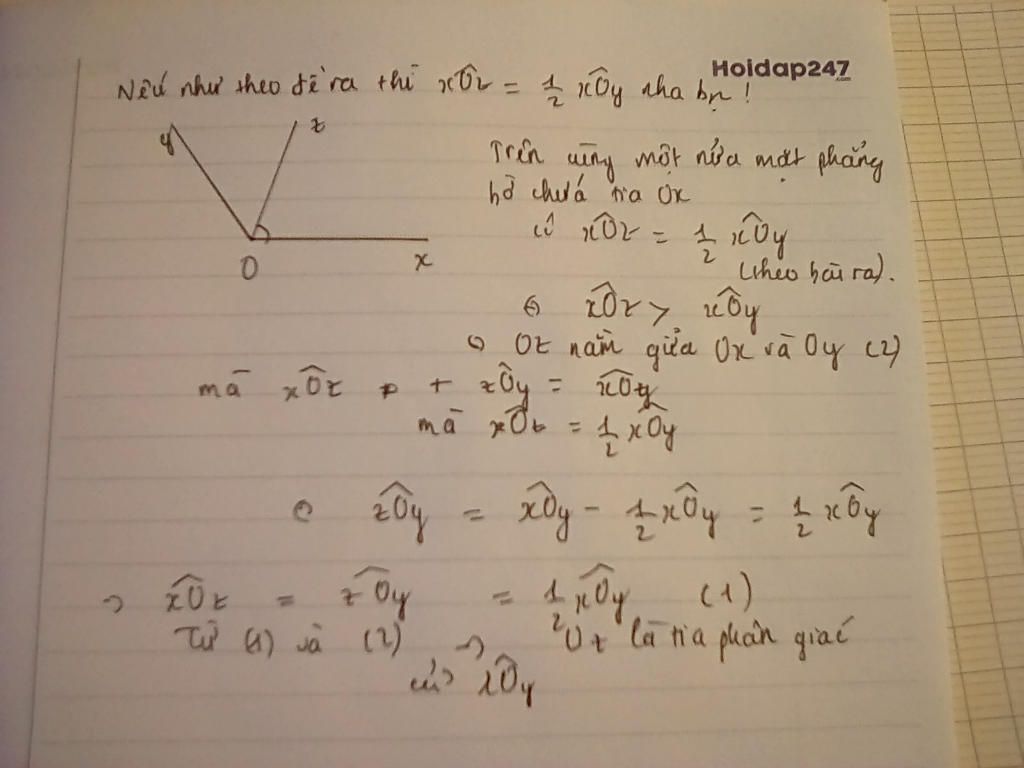 Hoidap247.com
Nếu như theo đề ra thì xOz = 1/2 xOy nha bn!
y
z
O
x
Trên cùng một nửa mặt phẳng
bờ chứa tia Ox
có xOz = 1/2 xOy
(theo bài ra).
xOz > xOy
Oz nằm giữa Ox và Oy (2)
mà xOz + zOy = xOy
mà xOz = 1/2 xOy
zOy = xOy - 1/2 xOy = 1/2 xOy
→ xOz = zOy = 1/2 xOy (1)
Từ (1) và (2) → Oz là tia phân giác
của xOy